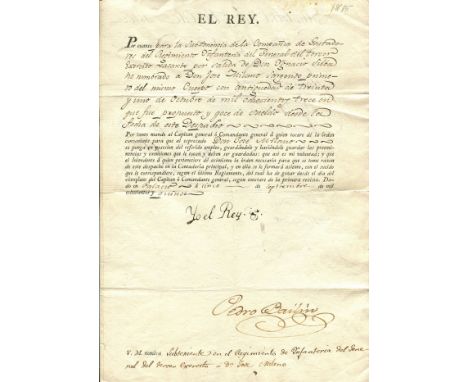 1815
EL REY.
Por cuanto para la Subtenencia de la Compañia de Gastadores
del Regimiento Infanteria del General del tercer
Exercito vacante por salida de Don Ignacio
he nombrado a Don Jose Milano Sargento primero
del mismo Cuerpo con antiguedad de treinta
y uno de Octubre de mil ochocientos trece en
que fue propuesto y goce de sueldo desde la
fecha de este Despacho
Por tanto mando al Capitan general ó Comandante general á quien tocare dé la órden
conveniente para que al expresado Don Jose Milano
se ponga en posesion del referido empleo, guardándole y haciéndole guardar las preeminencias
y exênciones que le tocan y deben ser guardadas: que así es mi voluntad; y que
el Intendente á quien perteneciere dé asimismo la órden necesaria para que se tome razon
de este despacho en la Contaduría principal, y en ella se le formará asiento, con el sueldo
que le correspondiere, segun el último Reglamento, del cual ha de gozar desde el dia del
cúmplase del Capitan ó Comandante general, segun constare de la primera revista. Dado
en Palacio á once de Septiembre de mil
ochocientos y quince
Yo el Rey.
Pedro
V. M. nombra Subteniente en el Regimiento de Infanteria del General
del tercer Exercito a Dn Jose Milano